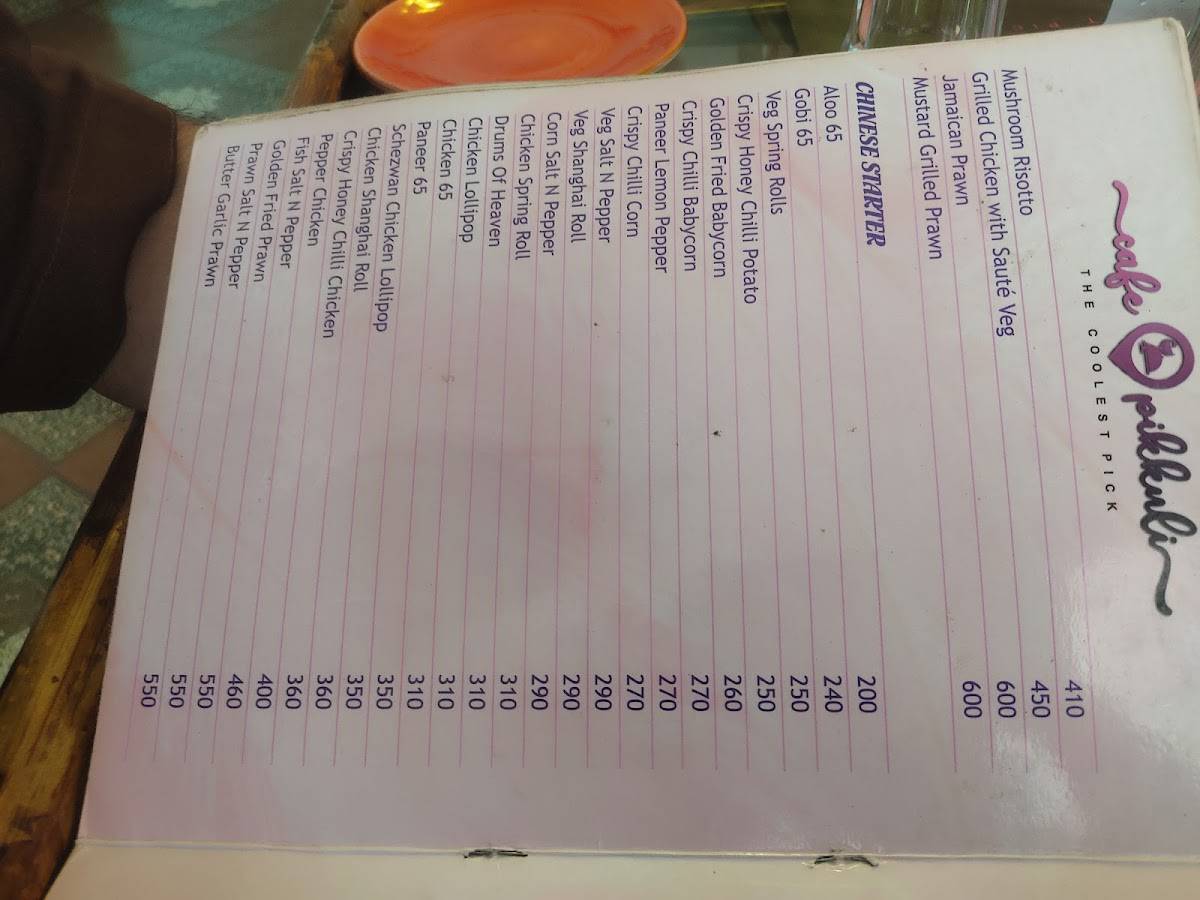 cafe pikkuli
THE COOLEST PICK
Mushroom Risotto 410
Grilled Chicken with Sauté Veg 450
Jamaican Prawn 600
Mustard Grilled Prawn 600
CHINESE STARTER
Aloo 65 200
Gobi 65 240
Veg Spring Rolls 250
Crispy Honey Chilli Potato 250
Golden Fried Babycorn 260
Crispy Chilli Babycorn 270
Paneer Lemon Pepper 270
Crispy Chilli Corn 270
Veg Salt N Pepper 290
Veg Shanghai Roll 290
Corn Salt N Pepper 290
Chicken Spring Roll 310
Drums Of Heaven 310
Chicken Lollipop 310
Chicken 65 310
Paneer 65 350
Schezwan Chicken Lollipop 350
Chicken Shanghai Roll 360
Crispy Honey Chilli Chicken 360
Pepper Chicken 400
Fish Salt N Pepper 460
Golden Fried Prawn 550
Prawn Salt N Pepper 550
Butter Garlic Prawn 550